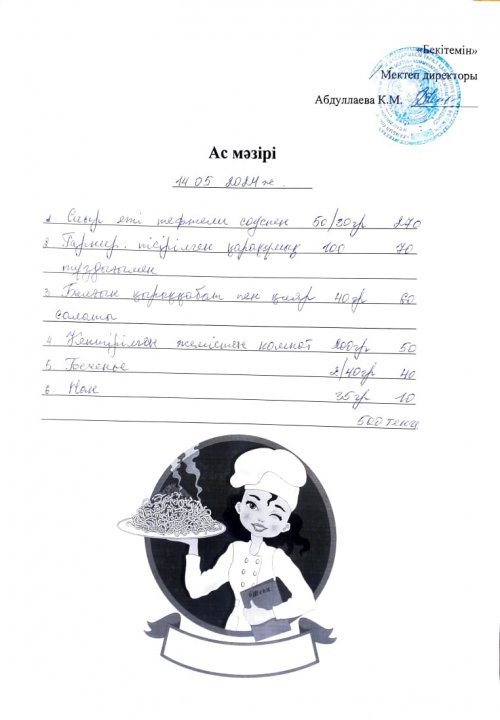 «Бекітемін»
Мектеп директоры
Абдуллаева К.М.
Ас мәзірі
14 05 2024ж.
1 Сиыр еті тефтели соуспен 50/30гр 270
2 Гарнир: пісірілген қарақұмық 100 70
тұздығымен
3 Балғын қырыққабат пен қияр 40гр 60
салаты
4 Кептірілген жемістен компот 200гр 50
5 Печенье 2/40гр 40
6 Нан 35гр 10
500 теңге
Меню